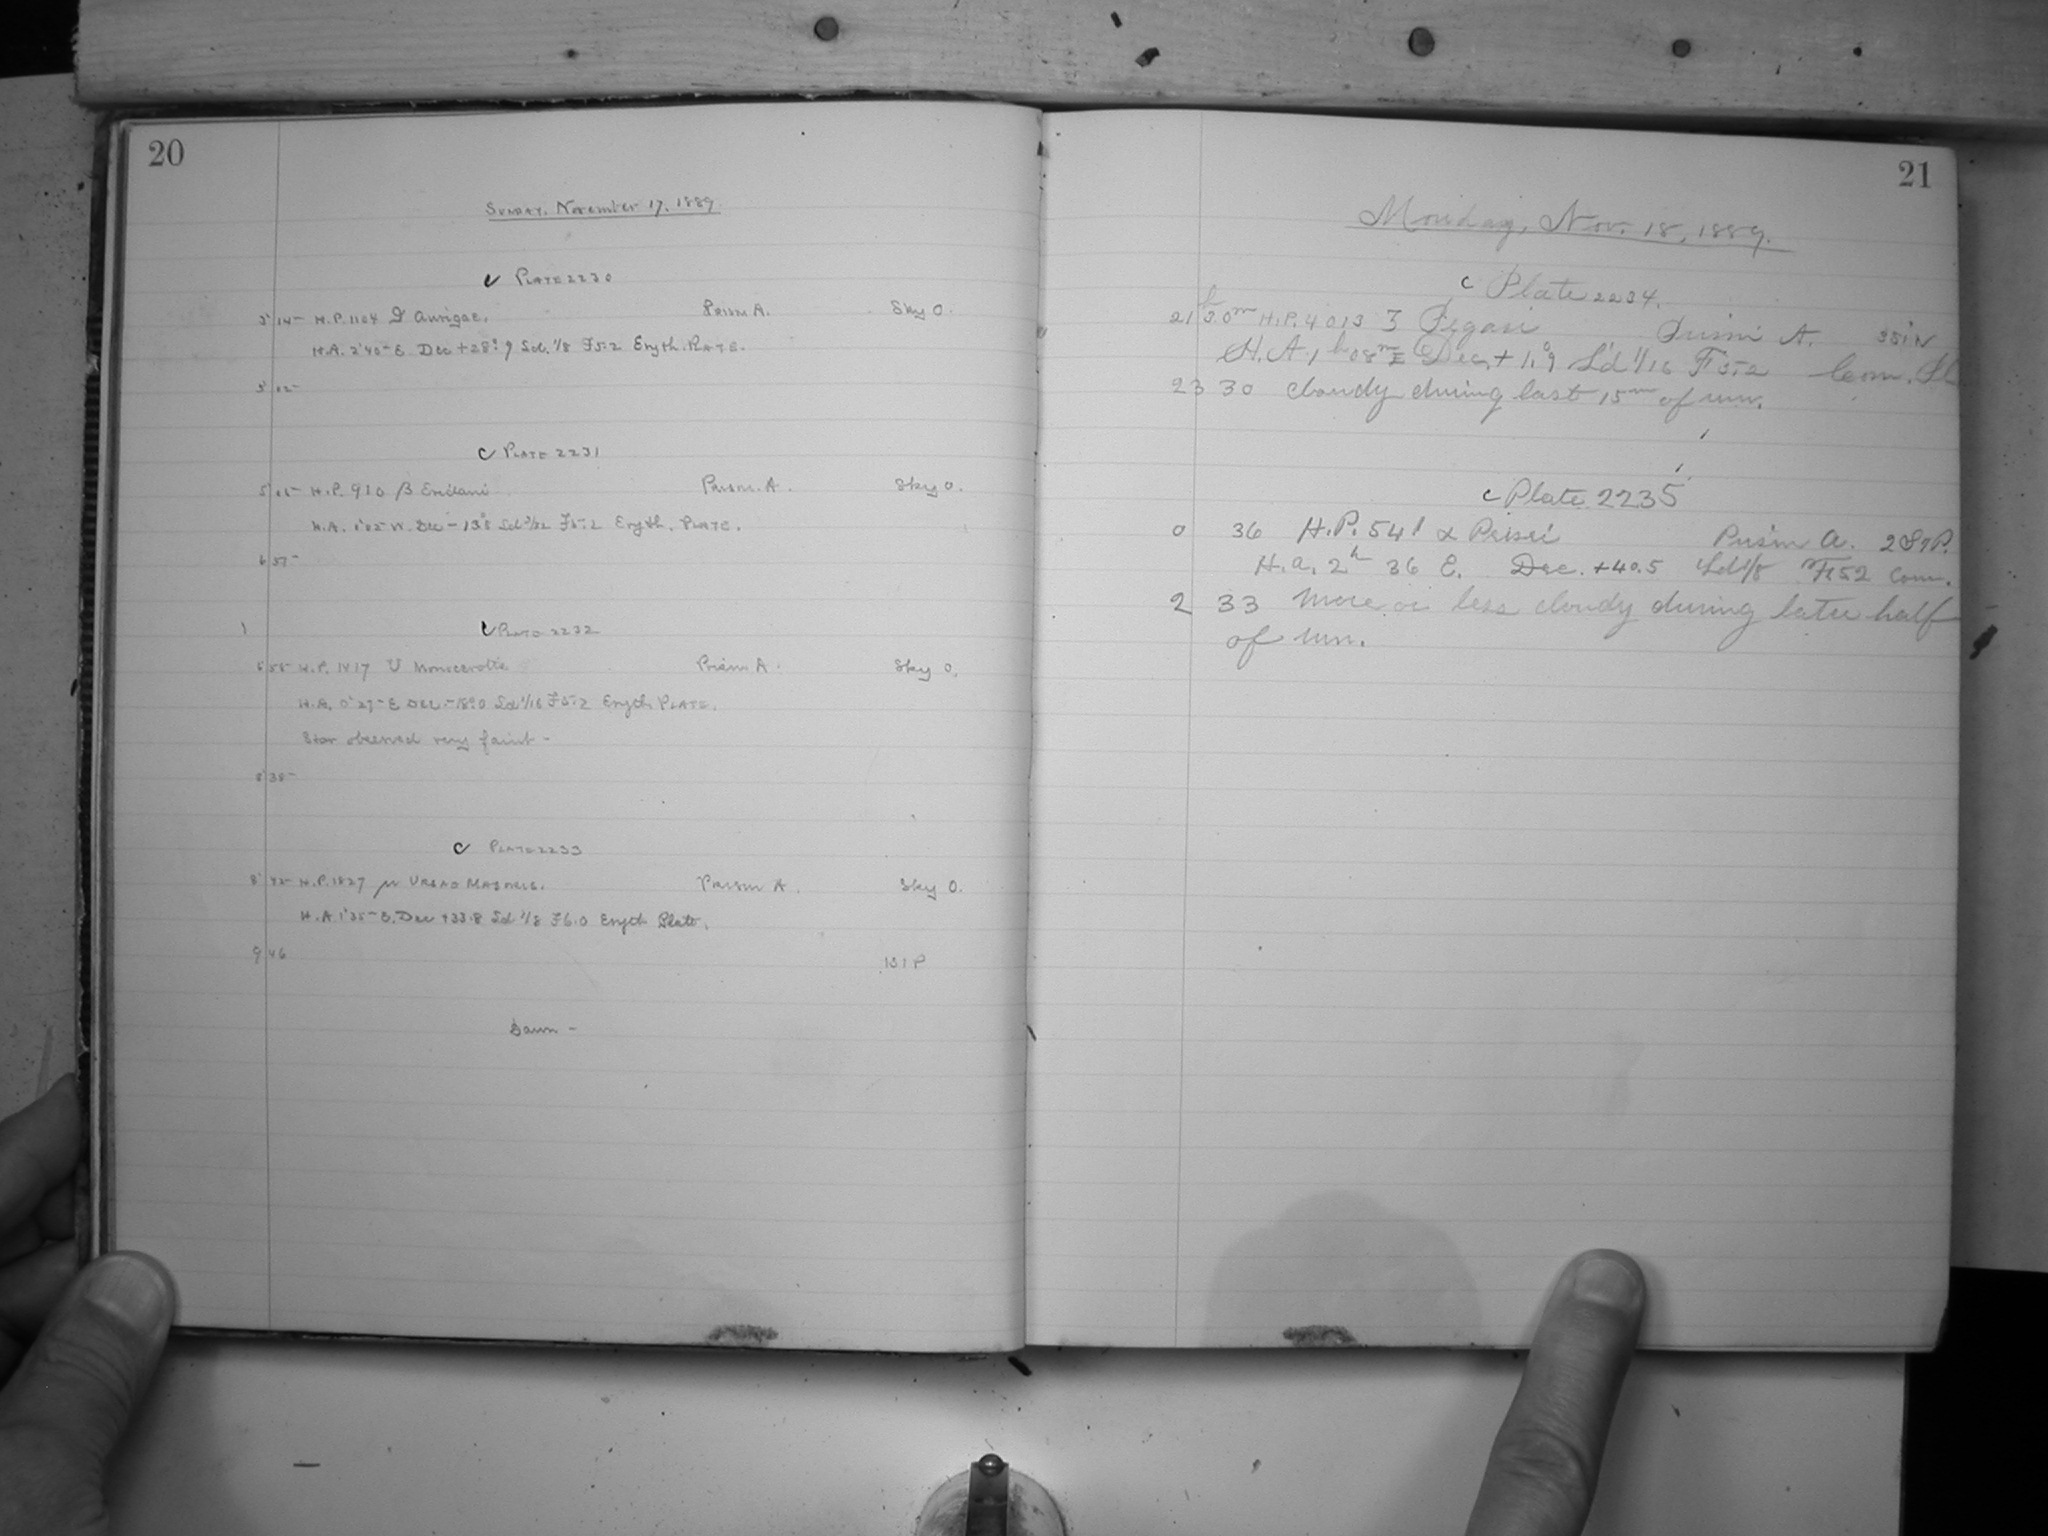 20
Sunday, November 17, 1889.
c Plate 2230
3 14 H.P. 1104 Aurigae. Prism A. Sky 0.
H.A. 2 40 E Dec +28°.9 Sd. 1/8 F 5.2 Eryth. Plate.
5 02
c Plate 2231
5 05 H.P. 910 β Eridani Prism. A. Sky 0.
H.A. 1 02 W. Dec Sd 3/32 F 5.2 Eryth. Plate.
6 51
c Plate 2232
6 55 H.P. 1417 U Monocerotis Prism A. Sky 0.
H.A. 0 27 E Dec. Sd 1/16 F 5.2 Eryth Plate.
Star observed very faint -
8 38
c Plate 2233
8 42 H.P. 1827 μ Ursae Majoris. Prism A. Sky 0.
H.A 1 35 E. Dec +33.8 Sd 1/8 F 6.0 Eryth Plate.
9 46
131 P
Dawn -
21
Monday, Nov. 18, 1889.
c Plate 2234.
21h 30m H.P. 4013 Pegasi Prism A. 351 N
H.A. 1h 08m E Dec. + 1°.9 Sd 1/16 F 5.2 Com. Pl
23 30 cloudy during last 15m of run.
c Plate 2235
0 36 H.P. 541 Prism A. 287 P.
H.a. 2h 36 E. Dec. +40.5 Sd 1/8 F 5.2 Com.
2 33 More or less cloudy during later half
of run.